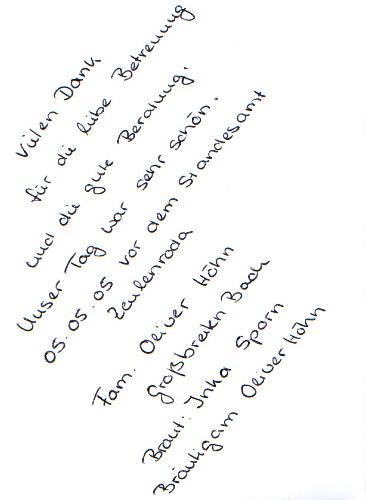 Vielen Dank
für die liebe Betreuung
und die gute Beratung.
Unser Tag war sehr schön.
05.05.05 vor dem Standesamt
Zeulenroda
Fam. Oliver Höhn
Großbreitenbach
Braut: Inka Sporn
Bräutigam Oliver Höhn